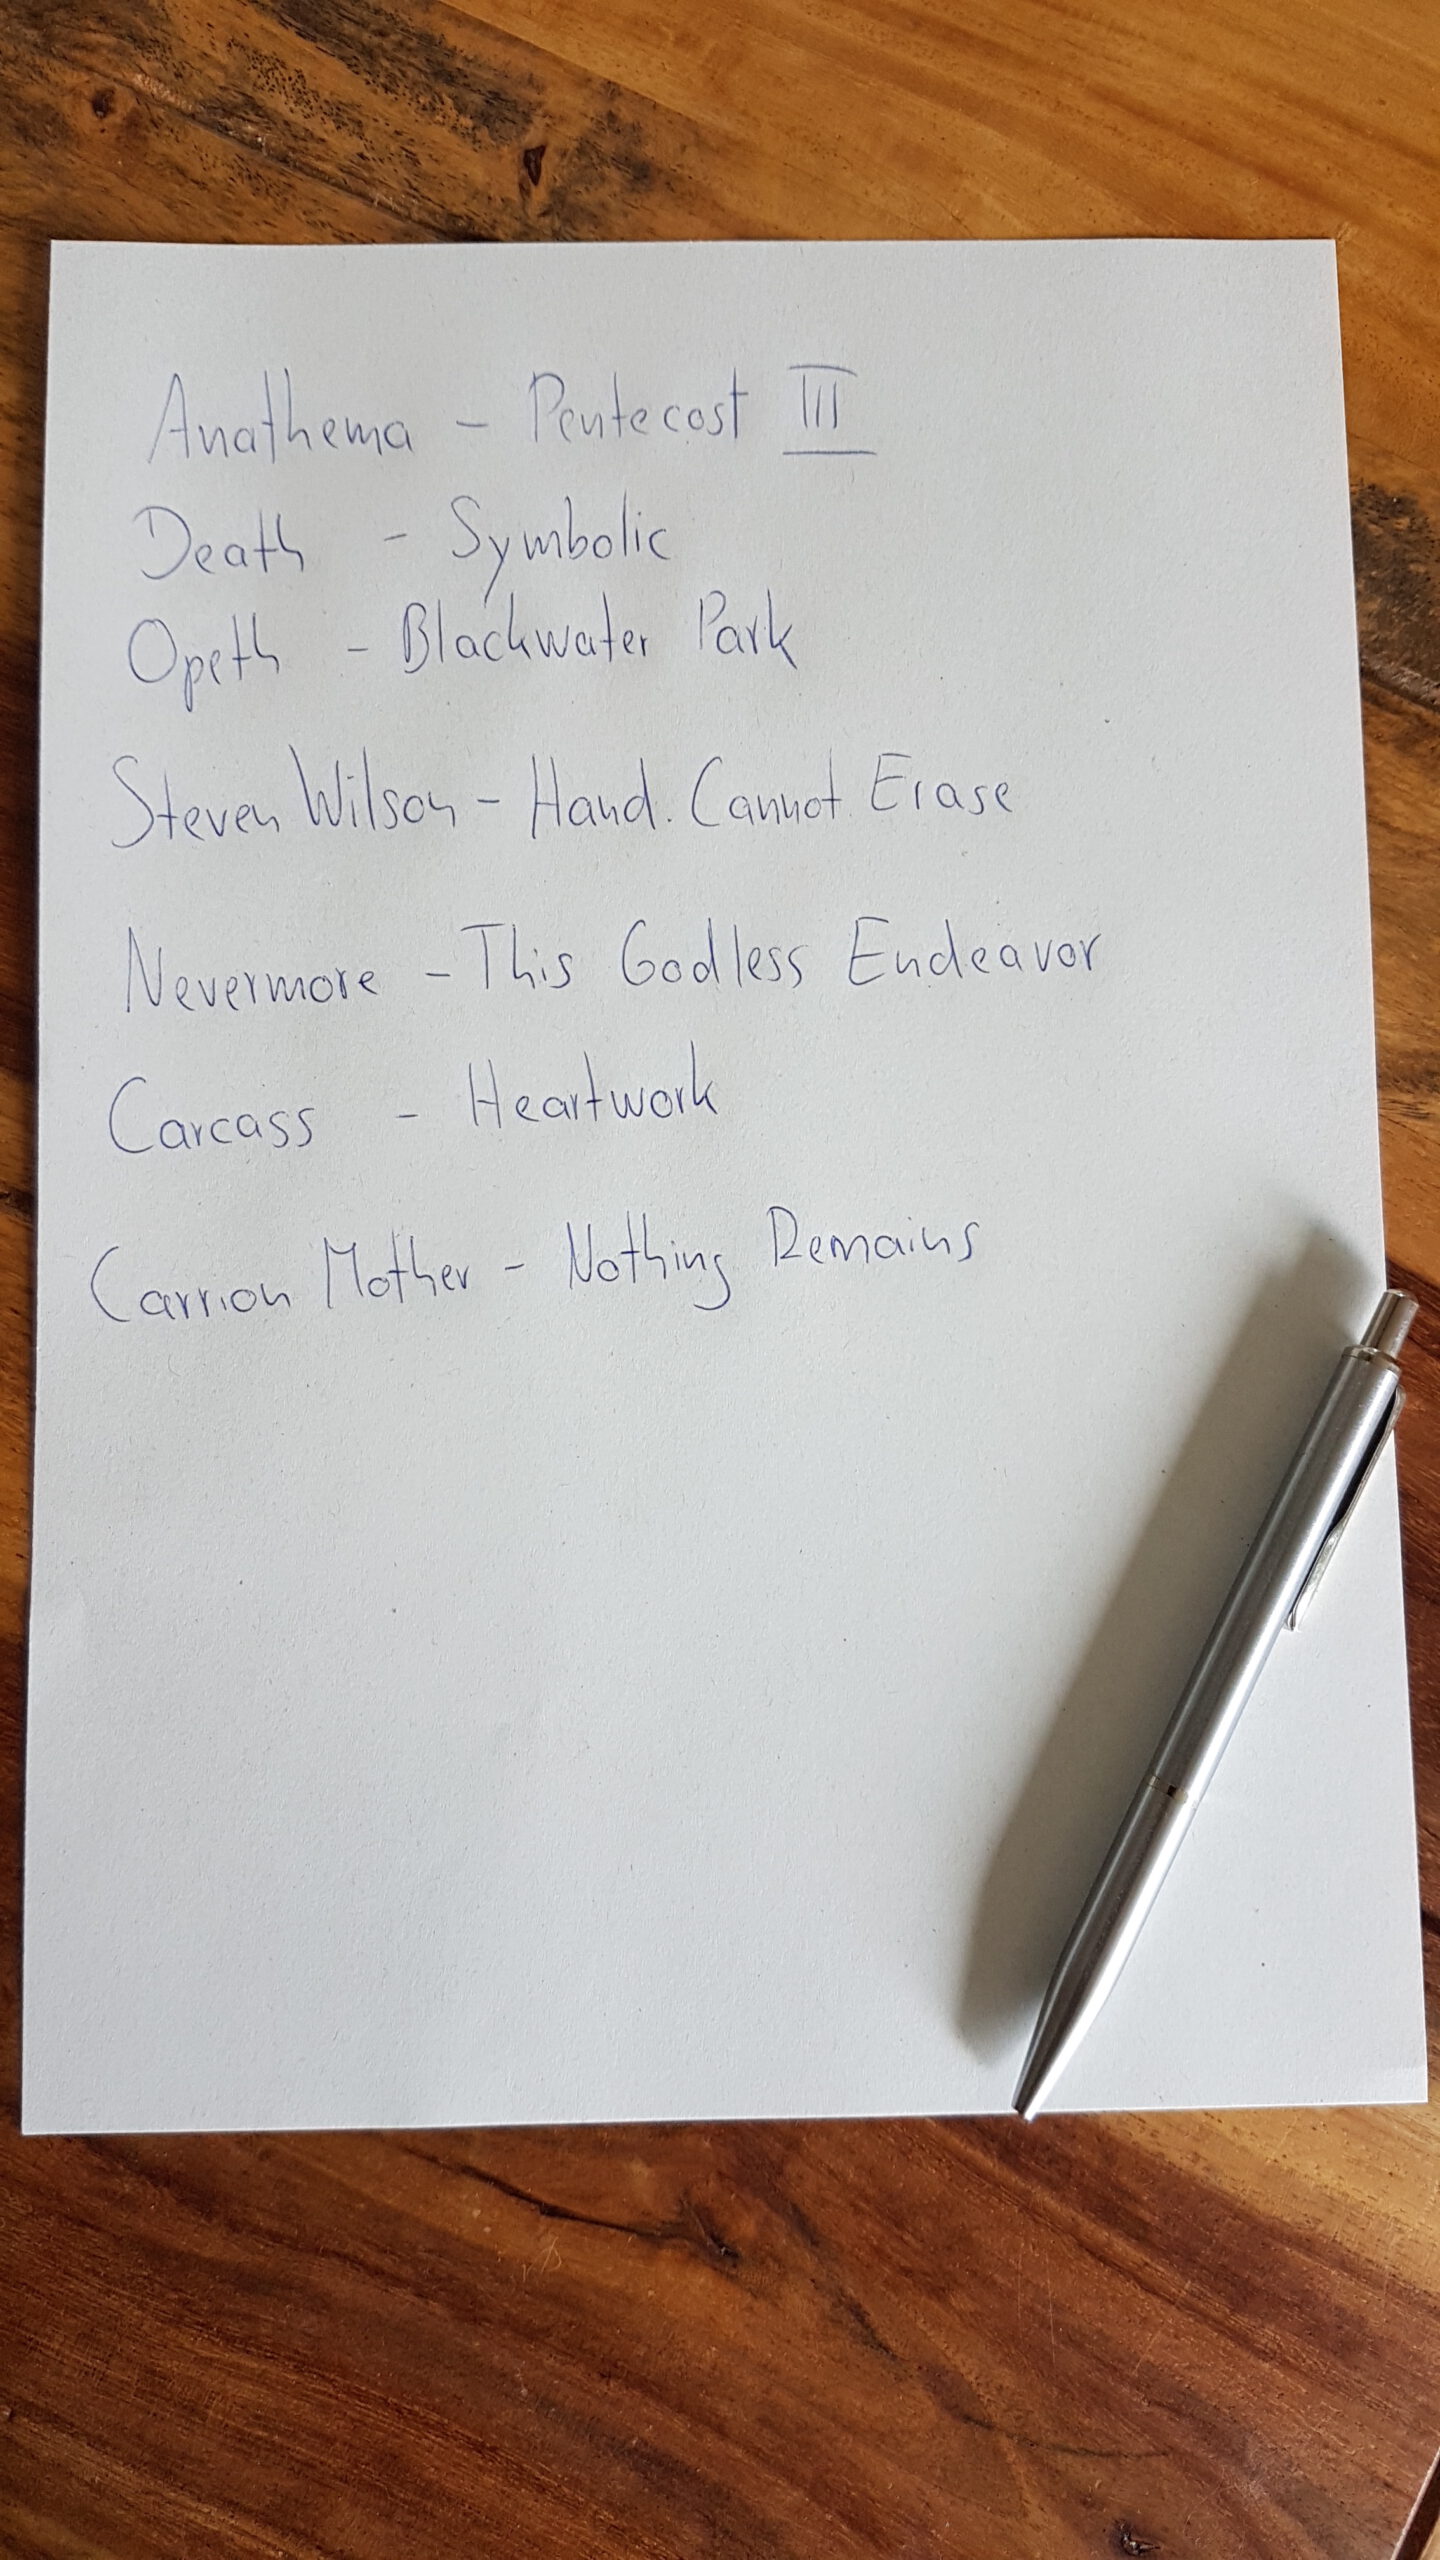 Anathema - Pentecost III
Death - Symbolic
Opeth - Blackwater Park
Steven Wilson - Hand. Cannot. Erase
Nevermore - This Godless Endeavor
Carcass - Heartwork
Carrion Mother - Nothing Remains